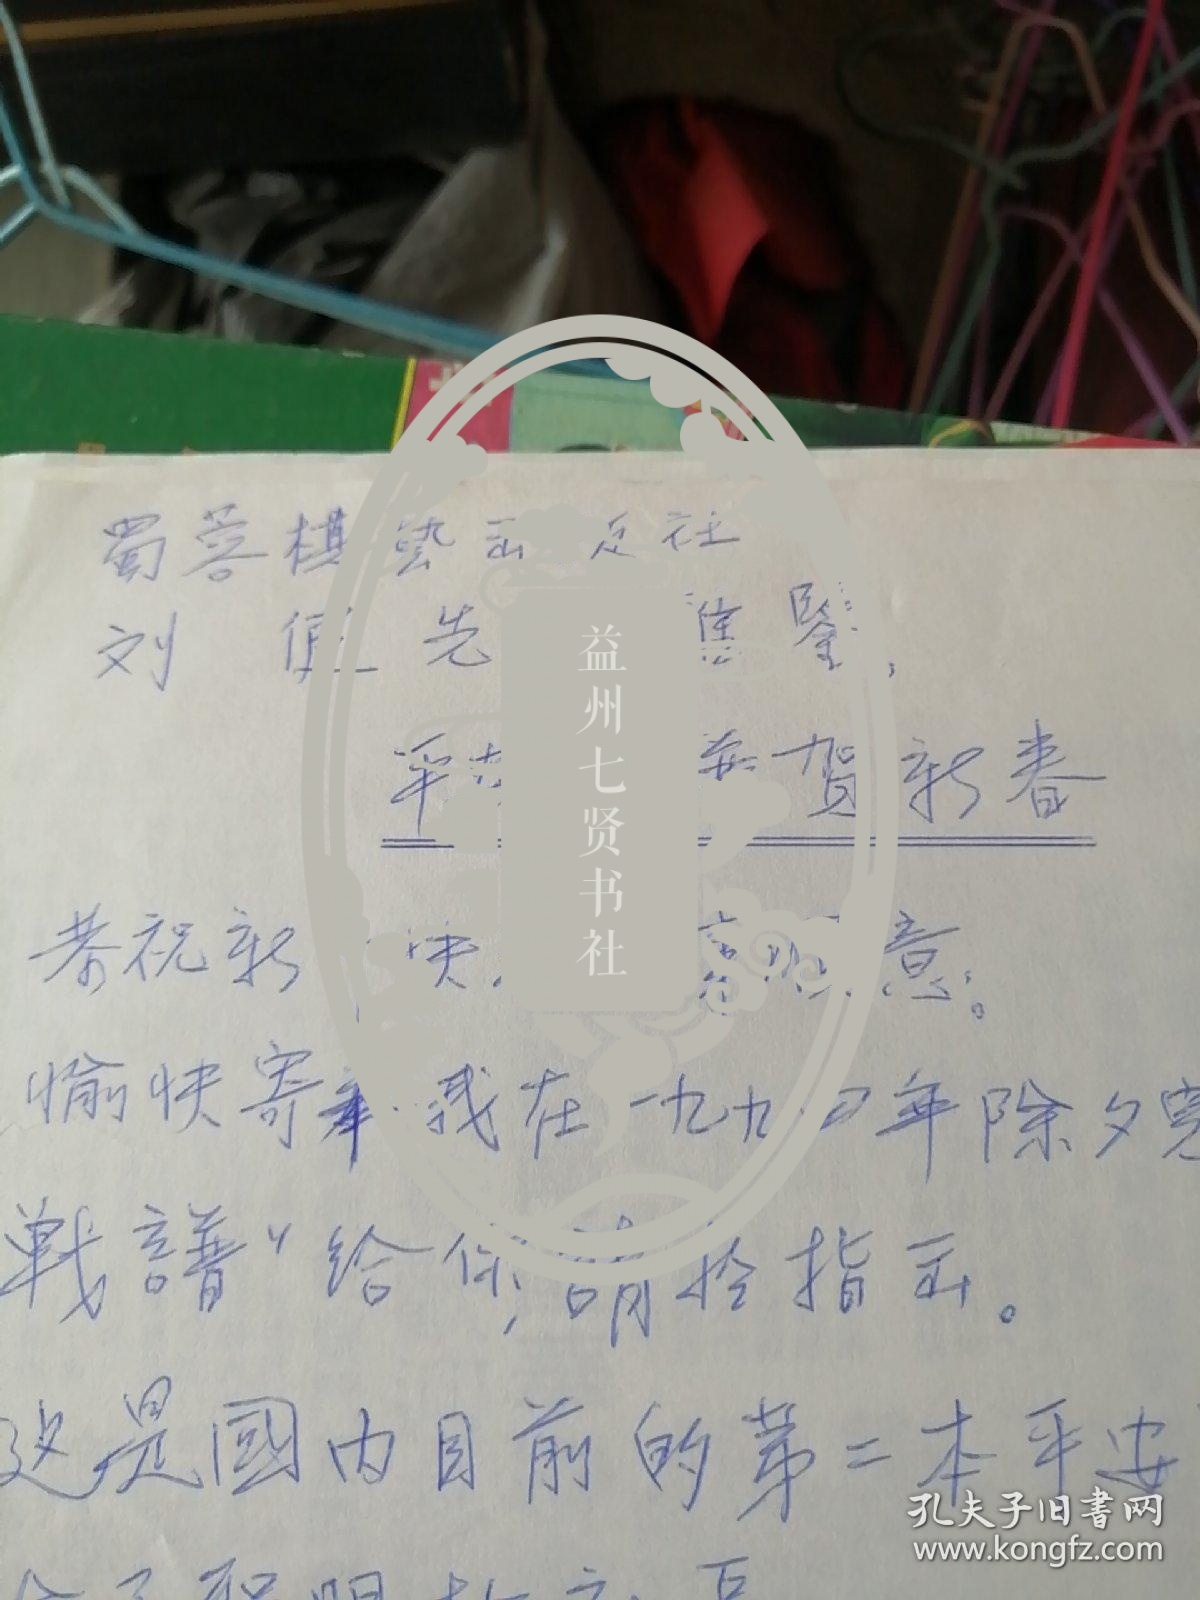 蜀蓉棋藝出版社
刘健先 雅鑒,
平 恭賀新春
恭祝新 快 意。
愉快寄奉我在一九九四年除夕
戰譜"给你,請於指正。
这是國内目前的第二本平安
益州七贤书社
孔夫子旧书网
www.kongfz.com